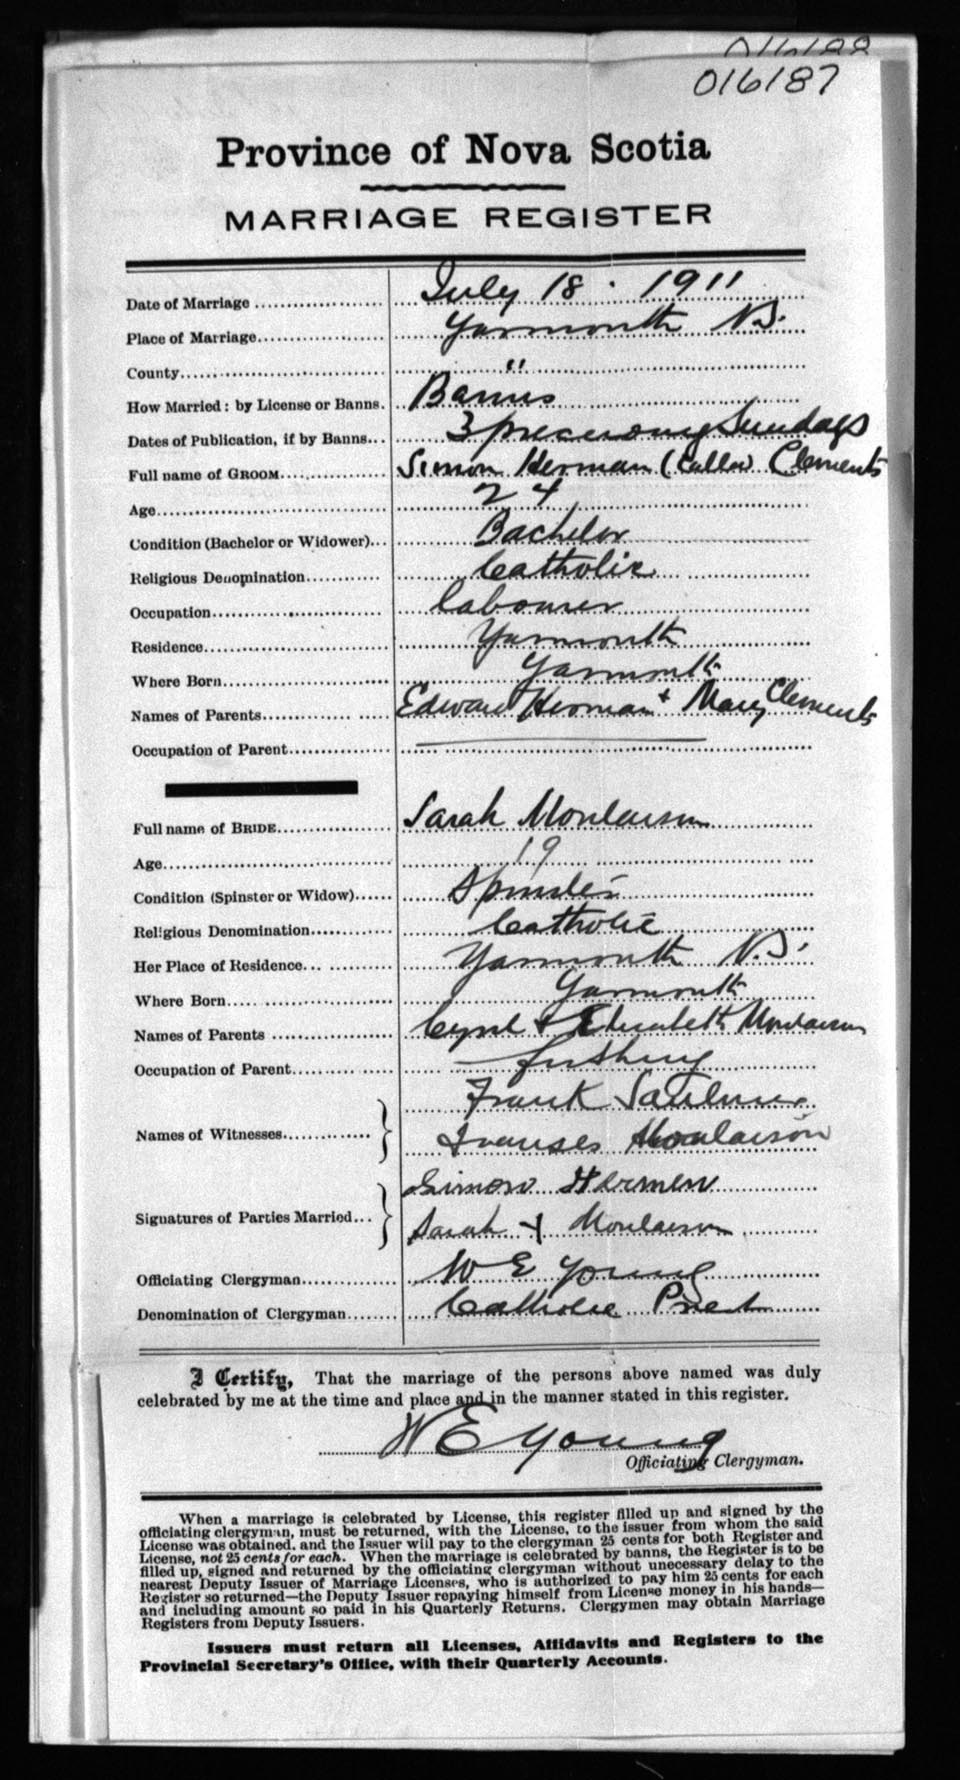 016188
016187
Province of Nova Scotia
MARRIAGE REGISTER
Date of Marriage July 18. 1911
Place of Marriage Yarmouth N.S.
County "
How Married: by License or Banns. Banns
Dates of Publication, if by Banns 3 preceding Sundays
Full name of GROOM Simon Herman (called Clements
Age 24
Condition (Bachelor or Widower) Bachelor
Religious Denomination Catholic
Occupation labourer
Residence Yarmouth
Where Born Yarmouth
Names of Parents Edward Herman + Mary Clements
Occupation of Parent
Full name of BRIDE Sarah Moulaison
Age 19
Condition (Spinster or Widow) Spinster
Religious Denomination Catholic
Her Place of Residence Yarmouth N.S.
Where Born Yarmouth
Names of Parents Cyril + Elizabeth Moulaison
Occupation of Parent fishing
Frank Saulnier
Names of Witnesses
Franses Moulaison
Simon Hermen
Signatures of Parties Married
Sarah + Moulaison
Officiating Clergyman W E Young
Denomination of Clergyman Catholic Priest
I Certify, That the marriage of the persons above named was duly
celebrated by me at the time and place and in the manner stated in this register.
W E Young
Officiating Clergyman.
When a marriage is celebrated by License, this register filled up and signed by the
officiating clergyman, must be returned, with the License, to the issuer from whom the said
License was obtained, and the Issuer will pay to the clergyman 25 cents for both Register and
License, not 25 cents for each. When the marriage is celebrated by banns, the Register is to be
filled up, signed and returned by the officiating clergyman without unnecessary delay to the
nearest Deputy Issuer of Marriage Licenses, who is authorized to pay him 25 cents for each
Register so returned—the Deputy Issuer repaying himself from License money in his hands—
and including amount so paid in his Quarterly Returns. Clergymen may obtain Marriage
Registers from Deputy Issuers.
Issuers must return all Licenses, Affidavits and Registers to the
Provincial Secretary's Office, with their Quarterly Accounts.